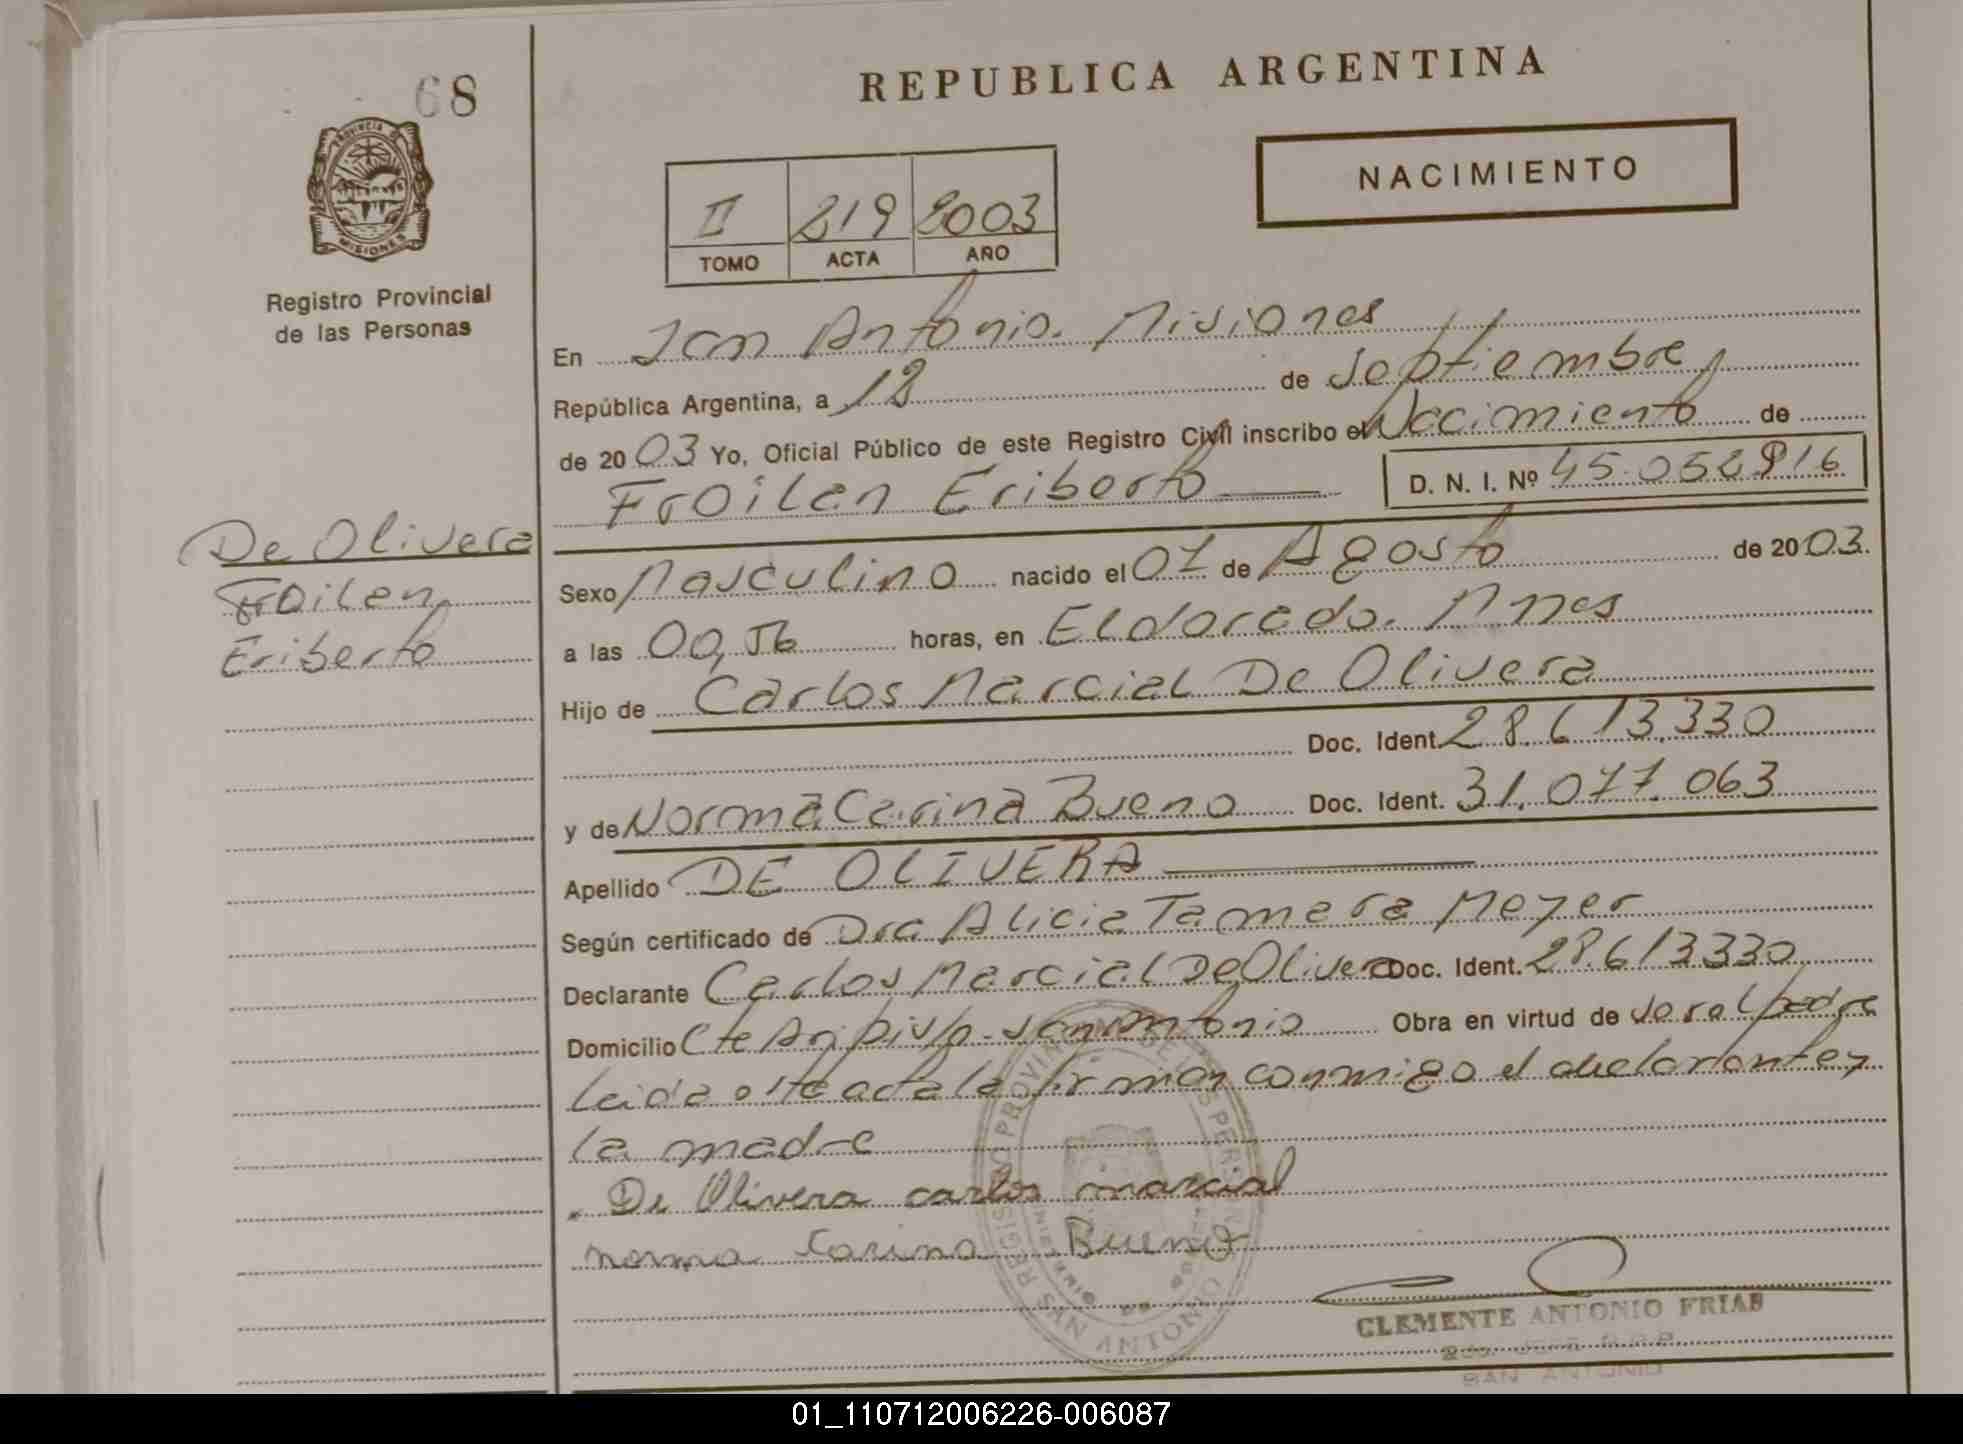 68
REPUBLICA ARGENTINA
NACIMIENTO
PROVINCIA DE
MISIONES
Registro Provincial
de las Personas
II 219 2003
TOMO ACTA AÑO
En San Antonio. Misiones
República Argentina, a 18 de Septiembre
de 2003 Yo, Oficial Público de este Registro Civil inscribo el Nacimiento de
Froilan Eriberto D. N. I. Nº 45.052916
De Olivera
Froilan
Eriberto
Sexo Masculino nacido el 07 de Agosto de 2003.
a las 00,56 horas, en Eldorado. Mnes
Hijo de Carlos Marcial De Olivera
Doc. Ident. 28.613.330
y de Norma Carina Bueno Doc. Ident. 31.077.063
Apellido DE OLIVERA
Según certificado de Dra Alicia Tamara Meyer
Declarante Carlos Marcial De Olivera Doc. Ident. 28.613330
Domicilio Cte - San Antonio Obra en virtud de ser el padre
Leida esta acta la firman conmigo el declarante y
la madre
De Olivera carlos marcial
norma Carina Bueno
REGISTRO PROVINCIAL DE LAS PERSONAS
SAN ANTONIO
CLEMENTE ANTONIO FRIAS
SAN ANTONIO
01_110712006226-006087